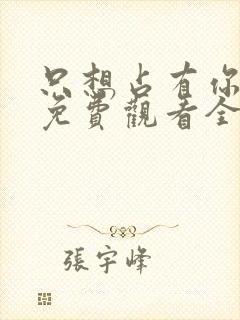 只想占有你
免費觀看全
張宇峰